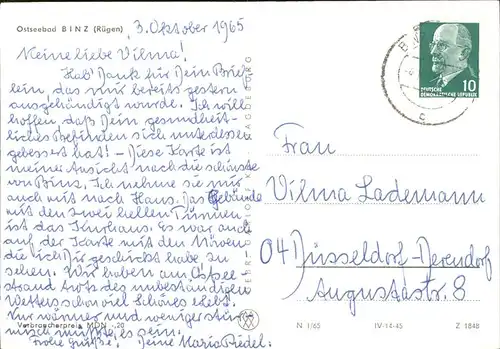 Ostseebad BINZ (Rügen)
3. Oktober 1965
Meine liebe Vilma!
Hab' Dank für Dein Brief-
lein, das mir bereits gestern
ausgehändigt wurde. Ich will
hoffen, daß Dein gesundheit-
liches Befinden sich unterdessen
gebessert hat! – Diese Karte ist
meine Ansicht nach die schönste
von Binz. Ich nehme sie mir
auch mit nach Haus. Das Gebäude
mit den zwei hellen Türmen
ist das Kurhaus. Es war auch
auf der Karte mit den Möven
die ich Dir geschickt habe zu
sehen. Wir haben am Ostsee
strand trotz des unbeständigen
Wetters schon viel Schönes erlebt.
Nur wärmer und weniger stür-
misch müßte es sein.
Frohe Grüße! Deine Maria Riedel.
Verbraucherpreis MDN -,20
MAGDEBURG
DEUTSCHE
DEMOKRATISCHE REPUBLIK
10
c
Frau
Vilma Lademann
04 Düsseldorf-Derendorf
Augustastr. 8
N 1/65 IV-14-45 Z 1848